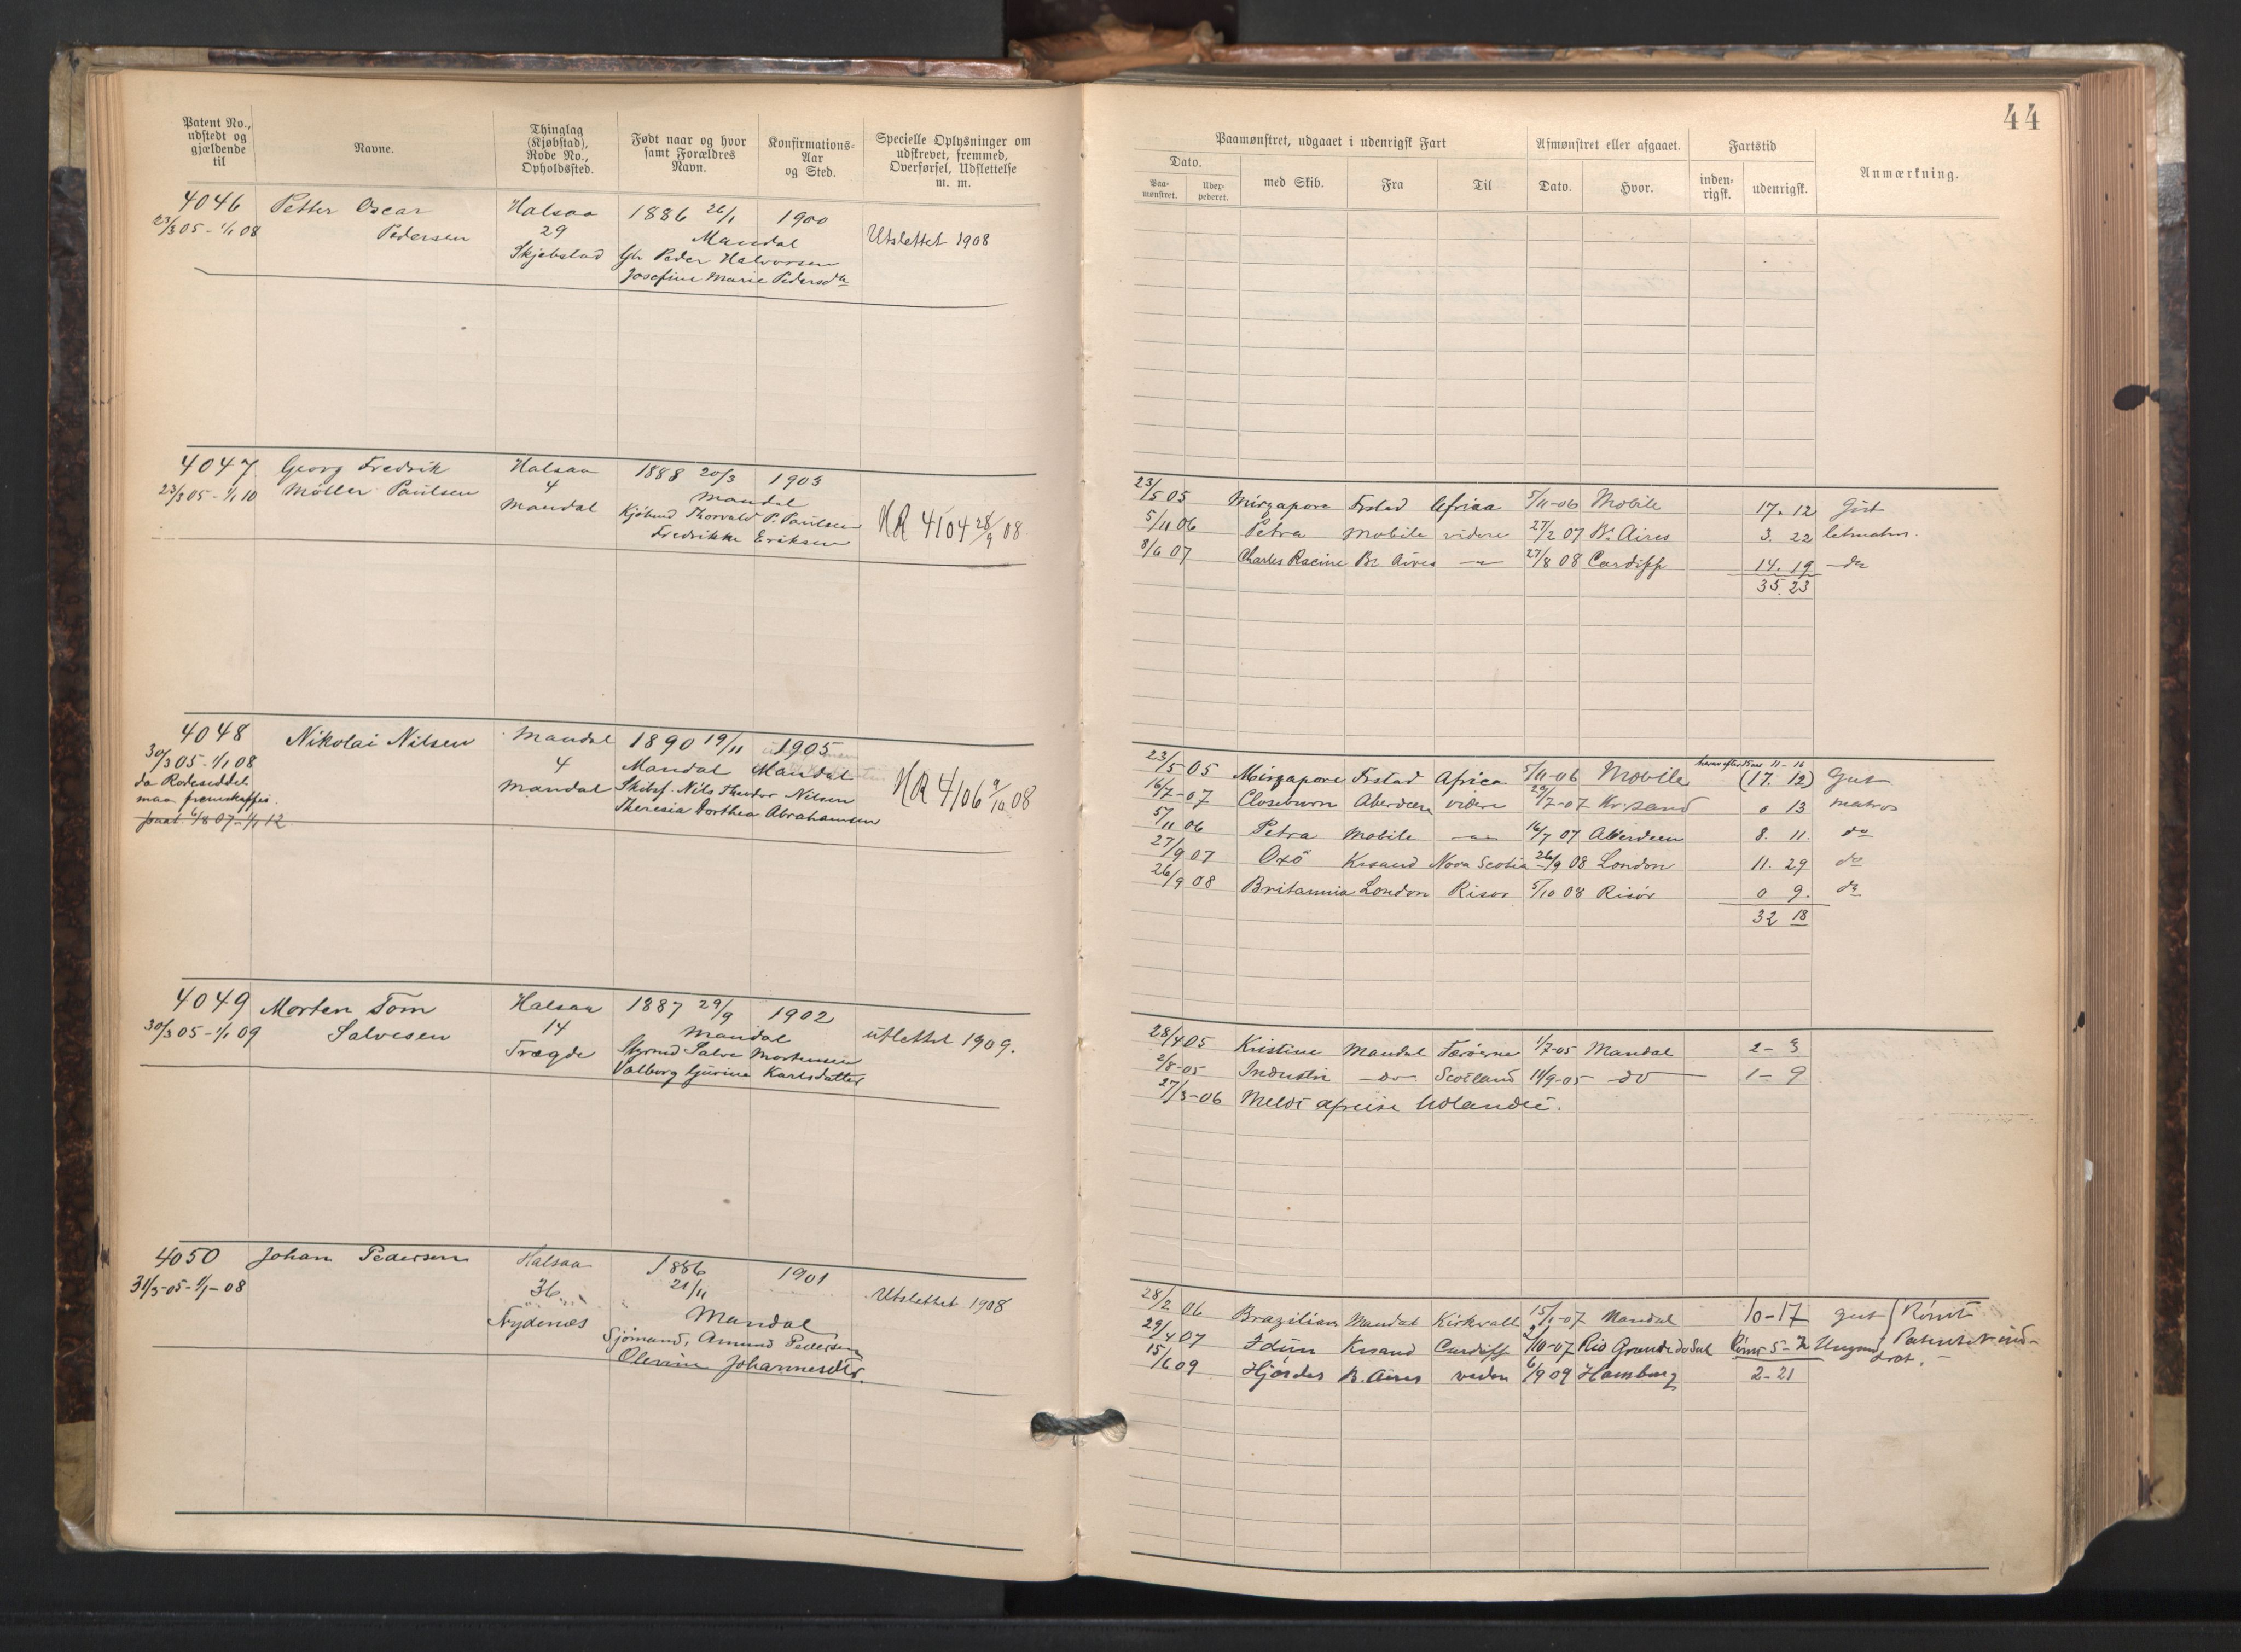 44
Patent No., udstedt og gjældende til
Navne.
Thinglag (Kjøbstad), Rode No., Opholdssted.
Født naar og hvor samt Forældres Navn.
Konfirmations-Aar og Sted.
Specielle Oplysninger om udskrevet, fremmed, Overførsel, Udslettelse m. m.
Paamønstret, udgaaet i udenrigsk Fart
Afmønstret eller afgaaet.
Fartstid
Anmærkning.
Dato.
Paa-mønstret.
Uder-pederet.
med Skib.
Fra
Til
Dato.
Hvor.
inden-rigsk.
udenrigsk.
4046 Petter Oscar Halsaa 1886 26/1 1900
23/3 05 - 1/1 08 Pedersen 29 Mandal Utslettet 1908
Skjebstad Gbr Peder Halvorsen
Josefine Marie Pedersdtr
4047 Georg Fredrik Halsaa 1888 20/3 1903
23/3 05 - 1/1 10 Möller Paulsen 4 Mandal
Mandal Kjøbmd Thorvald P. Paulsen HR 4104 28/9 08
Fredrikke Eriksen
23/5 05 Mirzapore Frstad Africa 5/11-06 Mobile 17. 12 Gut
5/11 06 Petra Mobile videre 27/2 07 B. Aires 3. 22 letmatros.
8/6 07 Charles Racine Bs Aires — 27/8 08 Cardiff 14. 19 do
35. 23
4048 Nikolai Nilsen Mandal 1890 19/11 1905
30/3 05 - 1/1 08 4 Mandal Mandal
da Rodeseddel Mandal Skibsf. Nils Theodor Nilsen HR 4106 9/10 08
maa fremskaffes. Theresia Dorthea Abrahamsen
paat. 6/8 07 - 1/1 12
23/5 05 Mirzapore Frstad Africa 5/11-06 Mobile (17. 12) Gut
11-16
16/7-07 Closeburn Aberdeen videre 29/7-07 Kr.sand 0 13 matros
5/11 06 Petra Mobile — 16/7 07 Aberdeen 8. 11. do
27/9 07 Oxö Krsand Nova Scotia 26/9 08 London 11. 29 do
26/9 08 Britannia London Risör 5/10 08 Risör 0 9. do
32 18
4049 Morten Tom Halsaa 1887 29/9 1902
30/3 05 - 1/1 09 Salvesen 14 Mandal utslettet 1909.
Trægde Styrmd Salve Mortensen
Valborg Gurine Karlsdatter
28/4 05 Kristine Mandal Færöerne 1/7-05 Mandal 2 - 3
2/8-05 Industri do Scotland 11/9-05 do 1 - 9
27/3-06 Meldt afreise Udlandet.
4050 Johan Pedersen Halsaa 1886 1901
31/3-05 - 1/1-08 36 21/11 Utslettet 1908
Nydenes Mandal
Sjømand, Amund Pedersen
Olevine Johannesdtr.
28/2 06 Brazilian Mandal Kirkvall 15/1-07 Mandal 10-17 gut
29/4 07 Idun Krsand Cardiff /10-07 Rio Grande do Sul
15/6 09 Hjørdis B. Aires 6/9 09 Hamburg 2-21